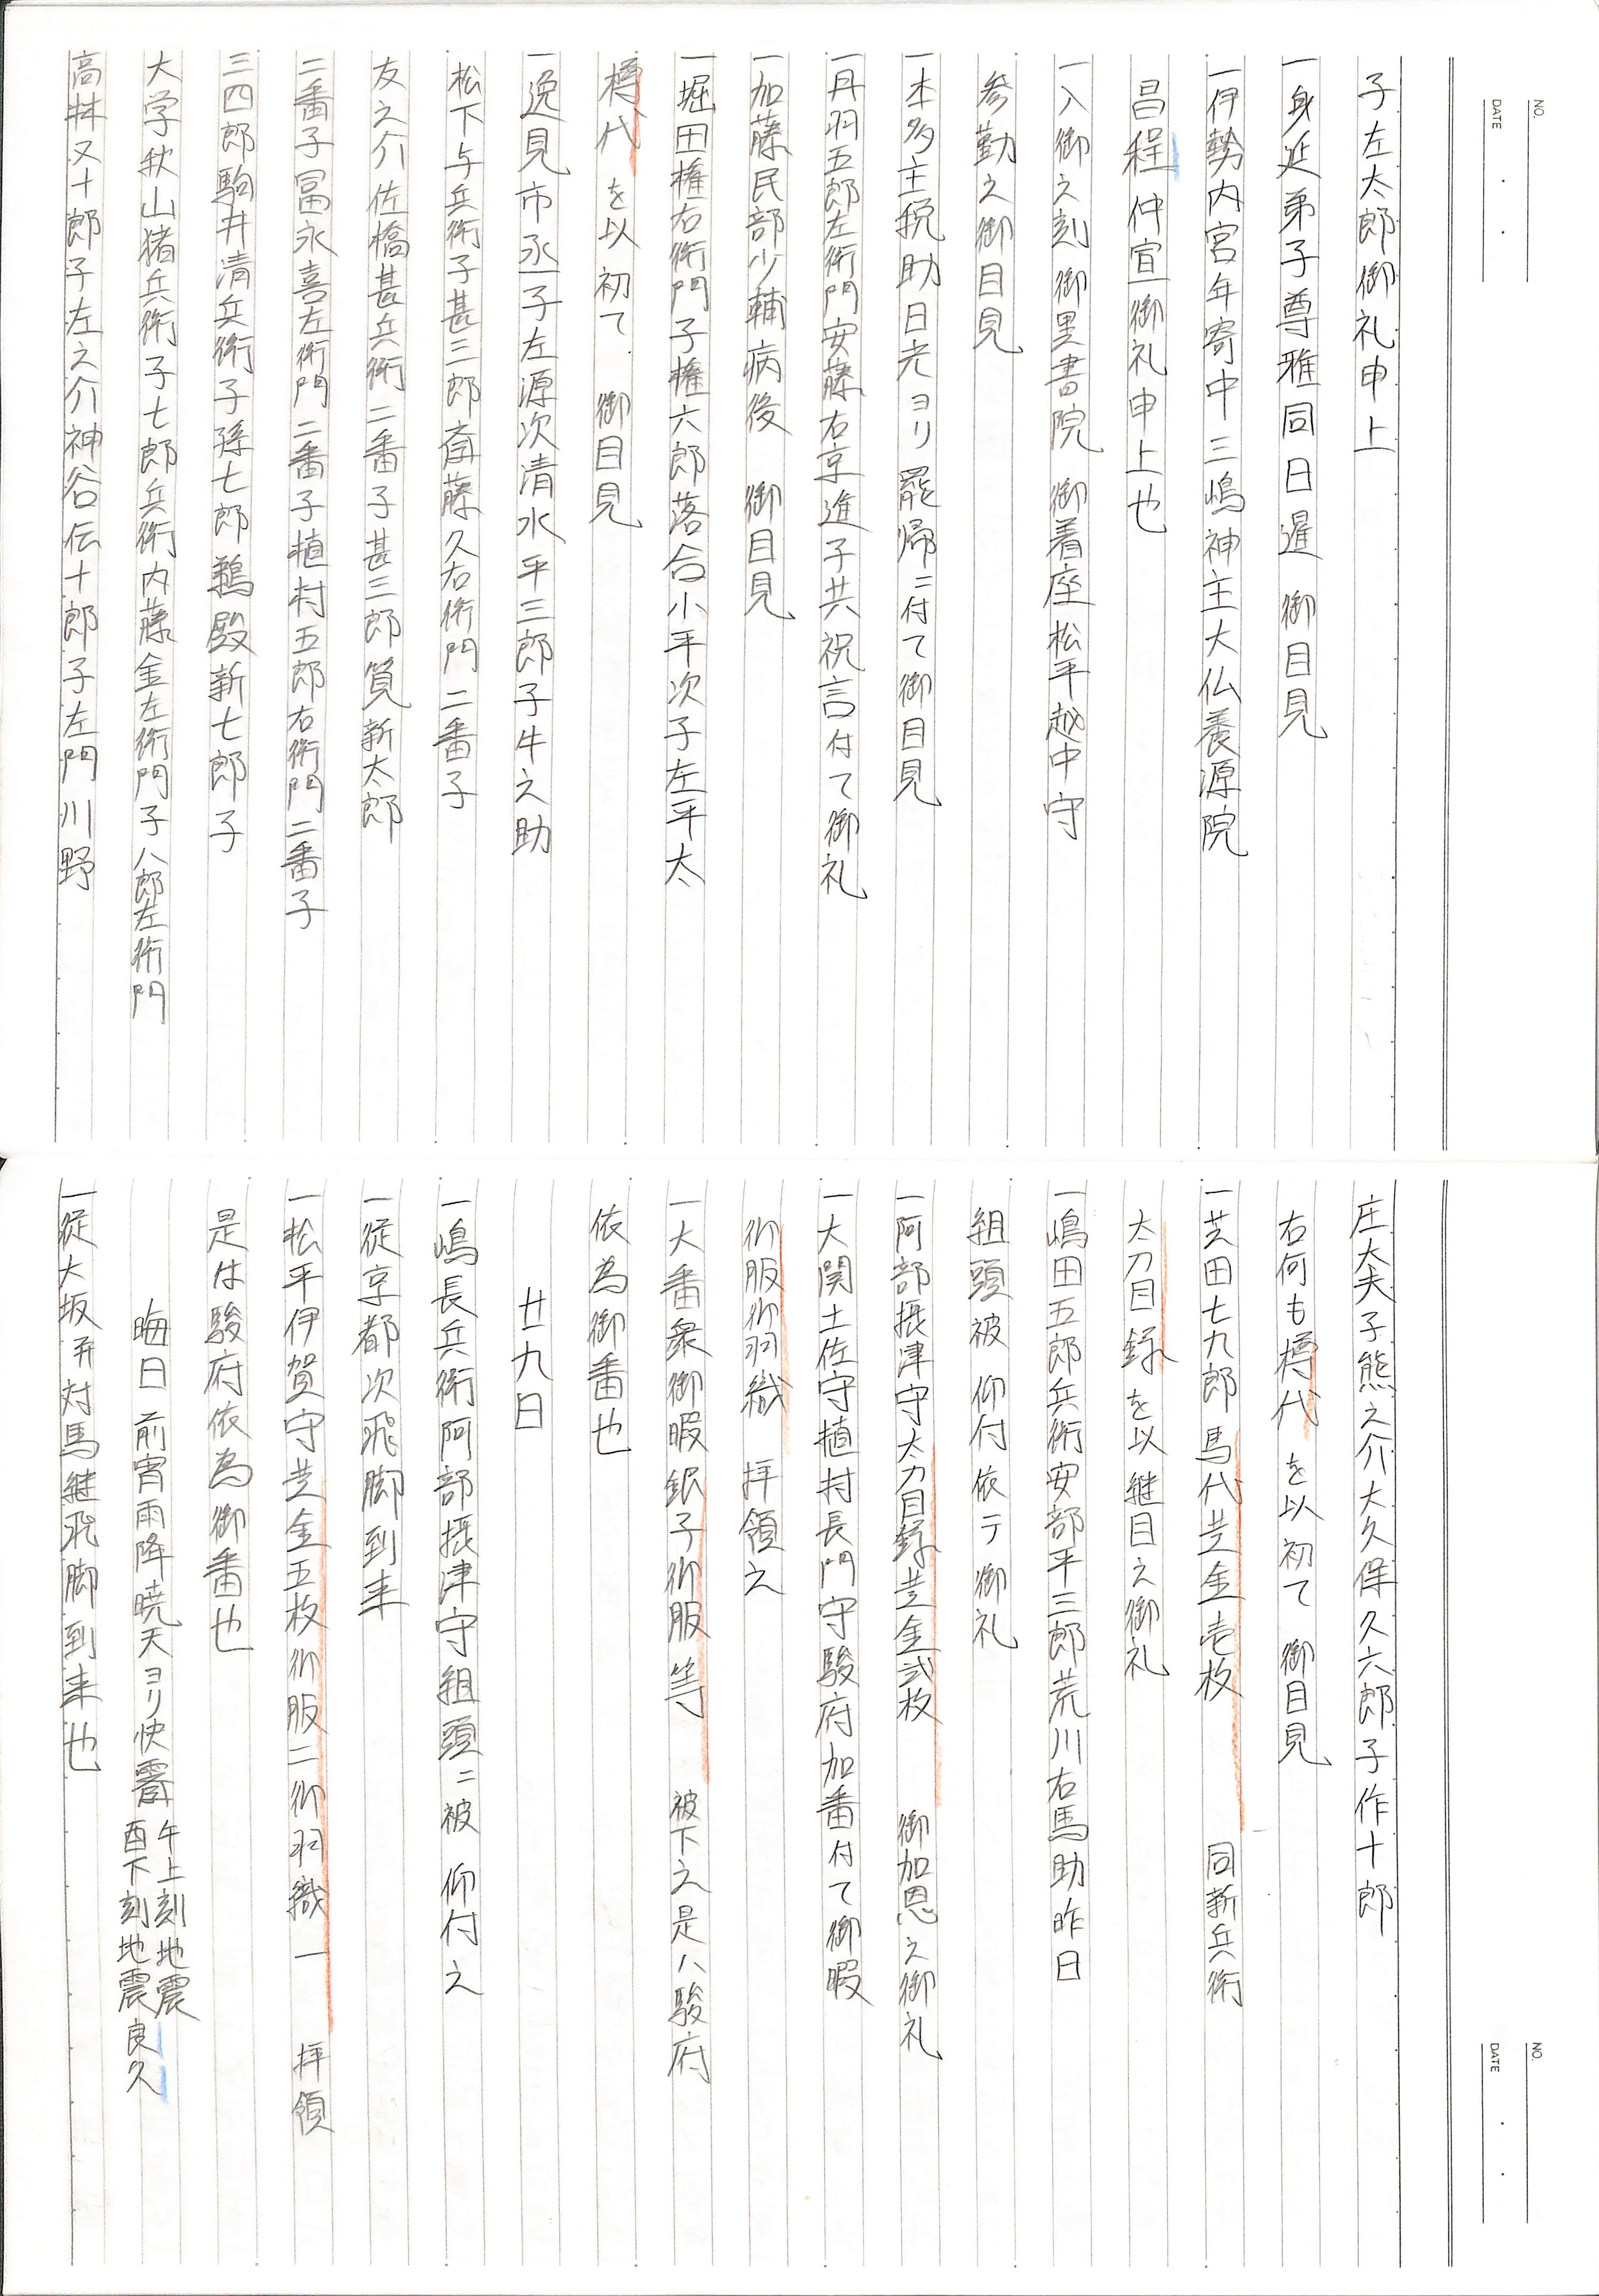 NO.
DATE
子左太郎御礼申上
一身延弟子尊雅同日暹 御目見
一伊勢内宮年寄中三嶋神主大仏養源院
昌程仲宣御礼申上也
一入御之刻御黒書院 御着座松平越中守
参勤之御目見
一本多主税助日光ヨリ罷帰ニ付て御目見
一丹羽五郎左衛門安藤右京進子共祝言付て御礼
一加藤民部少輔病後 御目見
一堀田権右衛門子権六郎落合小平次子左平太
樽代を以初て 御目見
一逸見市丞子左源次清水平三郎子牛之助
松下与兵衛子甚三郎斎藤久右衛門二番子
友之介佐橋甚兵衛二番子甚三郎筧新太郎
二番子冨永喜左衛門二番子植村五郎右衛門二番子
三四郎駒井清兵衛子孫七郎鵜殿新七郎子
大学秋山猪兵衛子七郎兵衛内藤金左衛門子八郎左衛門
高林又十郎子左之介神谷伝十郎子左門川野
NO.
DATE
庄大夫子熊之介大久保久六郎子作十郎
右何も樽代を以初て 御目見
一芝田七九郎馬代共金壱枚 同新兵衛
太刀目録を以継目之御礼
一嶋田五郎兵衛安部平三郎荒川右馬助昨日
組頭被 仰付依テ御礼
一阿部摂津守太刀目録共金弐枚 御加恩之御礼
一大関土佐守植村長門守駿府加番付て御暇
御服御羽織 拝領之
一大番衆御暇銀子御服等 被下之是ハ駿府
依為御番也
廿九日
一嶋長兵衛阿部摂津守組頭ニ被 仰付之
一従京都次飛脚到来
一松平伊賀守共金五枚御服二御羽織一 拝領
是は駿府依為御番也
晦日 前宵雨降暁天ヨリ快霽 午上刻地震
酉下刻地震良久
一従大坂并対馬継飛脚到来也